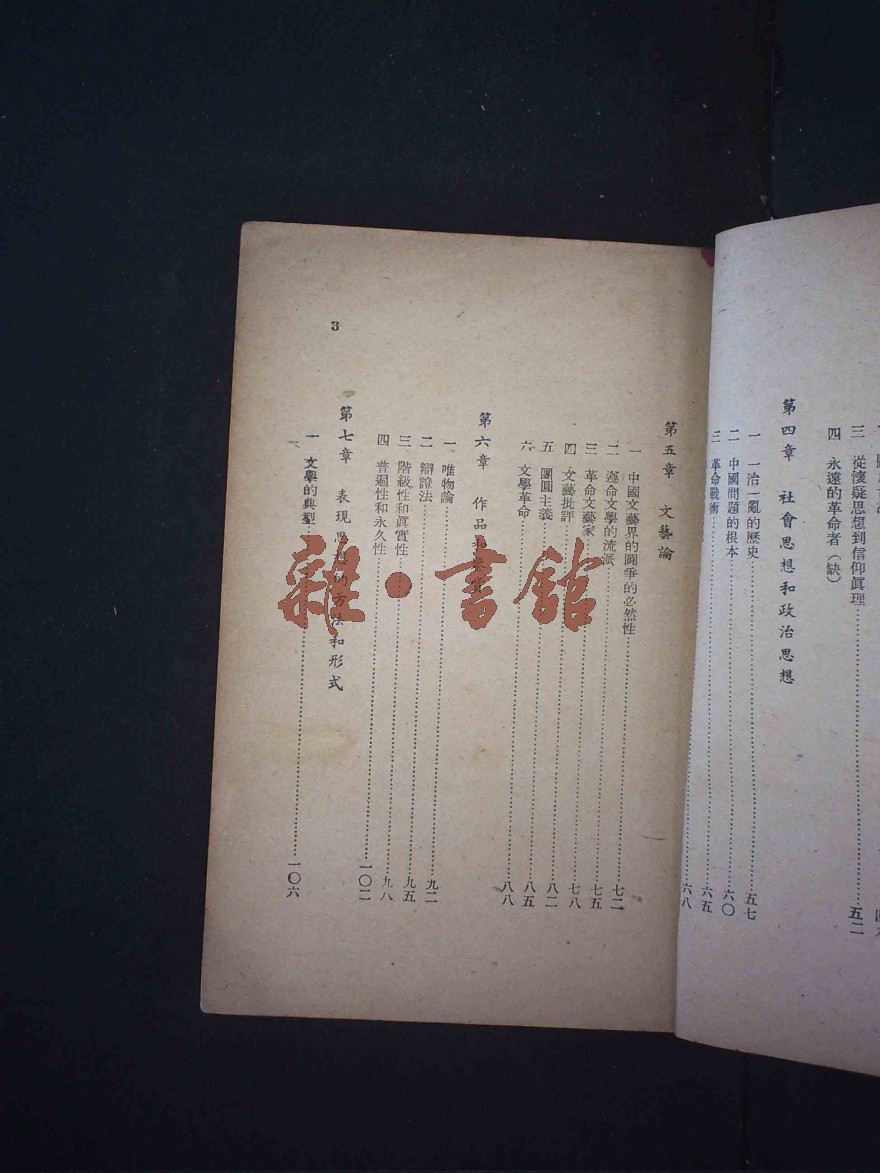 三 從懷疑思想到信仰眞理……五二
四 永遠的革命者（缺）
第四章 社會思想和政治思想
一 一治一亂的歷史……五七
二 中國問題的根本……六〇
三 革命戰術……六五
……六八
第五章 文藝論
一 中國文藝界的鬪爭的必然性……七二
二 遵命文學的流派……七五
三 革命文藝家……七八
四 文藝批評……八二
五 團圓主義……八五
六 文學革命……八八
第六章 作品
一 唯物論……九二
二 辯證法……九五
三 階級性和眞實性……九八
四 普遍性和永久性……一〇二
第七章 表現思想的方法和形式
一 文學的典型……一〇六
3
雜·書館